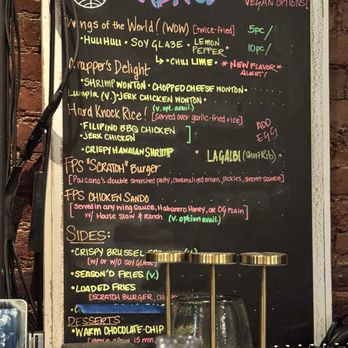 MENU
VEGAN OPTIONS!
Wings of the World! (WOW) [twice-fried] 5pc/
• HULI HULI • SOY GLAZE • LEMON PEPPER • 10pc/
↳ CHILI LIME • *NEW FLAVOR ALERT!*
Wrapper's Delight
• SHRIMP WONTON • CHOPPED CHEESE WONTON •
Lumpia (V.) • JERK CHICKEN WONTON
(v. opt. avail.)
Hard Knock Rice! [served over garlic-fried rice]
• FILIPINO BBQ CHICKEN
• JERK CHICKEN
ADD EGG
• CRISPY HAWAIIAN SHRIMP • LA GALBI (Short Rib) •
FPS "SCRATCH" Burger
[Paisano's double smashed patty, caramelized onions, pickles, secret sauce]
FPS CHICKEN SANDO
[served in any wing sauce, Habanero Honey, or OG Plain]
w/ House Slaw & Ranch (v. option avail.)
SIDES:
• CRISPY BRUSSEL
[w/ or w/o SOY GLAZE]
• SEASON'D FRIES (V.)
• LOADED FRIES
[SCRATCH BURGER,
DESSERTS
• WARM CHOCOLATE-CHIP
[please allow 15 min